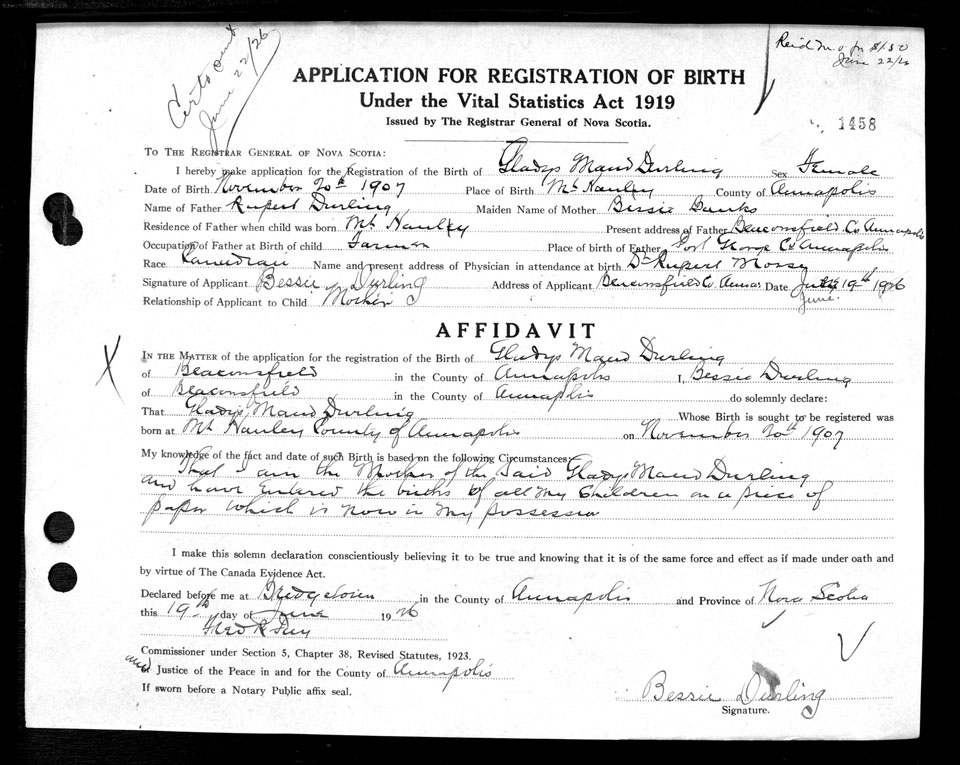 Certs sent
June 22/26
June 22/26
APPLICATION FOR REGISTRATION OF BIRTH
Under the Vital Statistics Act 1919
Issued by The Registrar General of Nova Scotia.
1458
TO THE REGISTRAR GENERAL OF NOVA SCOTIA:
I hereby make application for the Registration of the Birth of Gladys Maud Durling Sex Female
Date of Birth November 20th 1907 Place of Birth Mt Hanley County of Annapolis
Name of Father Rupert Durling Maiden Name of Mother Bessie Banks
Residence of Father when child was born Mt Hanley Present address of Father Beaconsfield Co Annapolis
Occupation of Father at Birth of child Farmer Place of birth of Father Port George Co Annapolis
Race Canadian Name and present address of Physician in attendance at birth Dr Rupert Morse
Signature of Applicant Bessie Durling Address of Applicant Beaconsfield Co. Annas Date July 19th 1926
June
Relationship of Applicant to Child Mother
AFFIDAVIT
IN THE MATTER of the application for the registration of the Birth of Gladys Maud Durling
of Beaconsfield in the County of Annapolis I, Bessie Durling
of Beaconsfield in the County of Annapolis do solemnly declare:
That Gladys Maud Durling Whose Birth is sought to be registered was
born at Mt Hanley County of Annapolis on November 20th 1907
My knowledge of the fact and date of such Birth is based on the following Circumstances:
That I am the Mother of the Said Gladys Maud Durling
and have Entered the births of all my Children on a piece of
paper which is now in my possession
I make this solemn declaration conscientiously believing it to be true and knowing that it is of the same force and effect as if made under oath and
by virtue of The Canada Evidence Act.
Declared before me at Bridgetown in the County of Annapolis and Province of Nova Scotia
this 19th day of June 1926
Commissioner under Section 5, Chapter 38, Revised Statutes, 1923.
and Justice of the Peace in and for the County of Annapolis
If sworn before a Notary Public affix seal.
Bessie Durling
Signature.